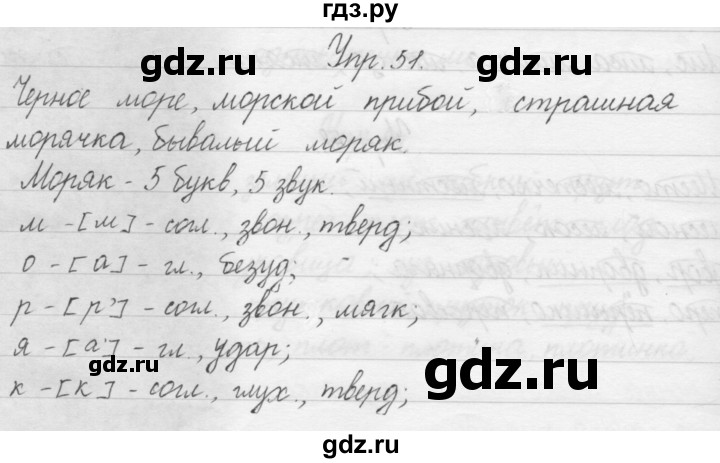 гдз.ру
Упр. 51.
gdz.ru gdz.ru
Черное море, морской прибой, страшная
морячка, бывалый моряк.
Моряк - 5 букв, 5 звук.
gdz.ru gdz.ru
м - [м] - согл., звон., тверд;
о - [а] - гл., безуд;
gdz.ru gdz.ru
р - [р'] - согл., звон., мягк;
я - [а'] - гл., удар;
gdz.ru gdz.ru
к - [к] - согл., глух., тверд;
gdz.ru